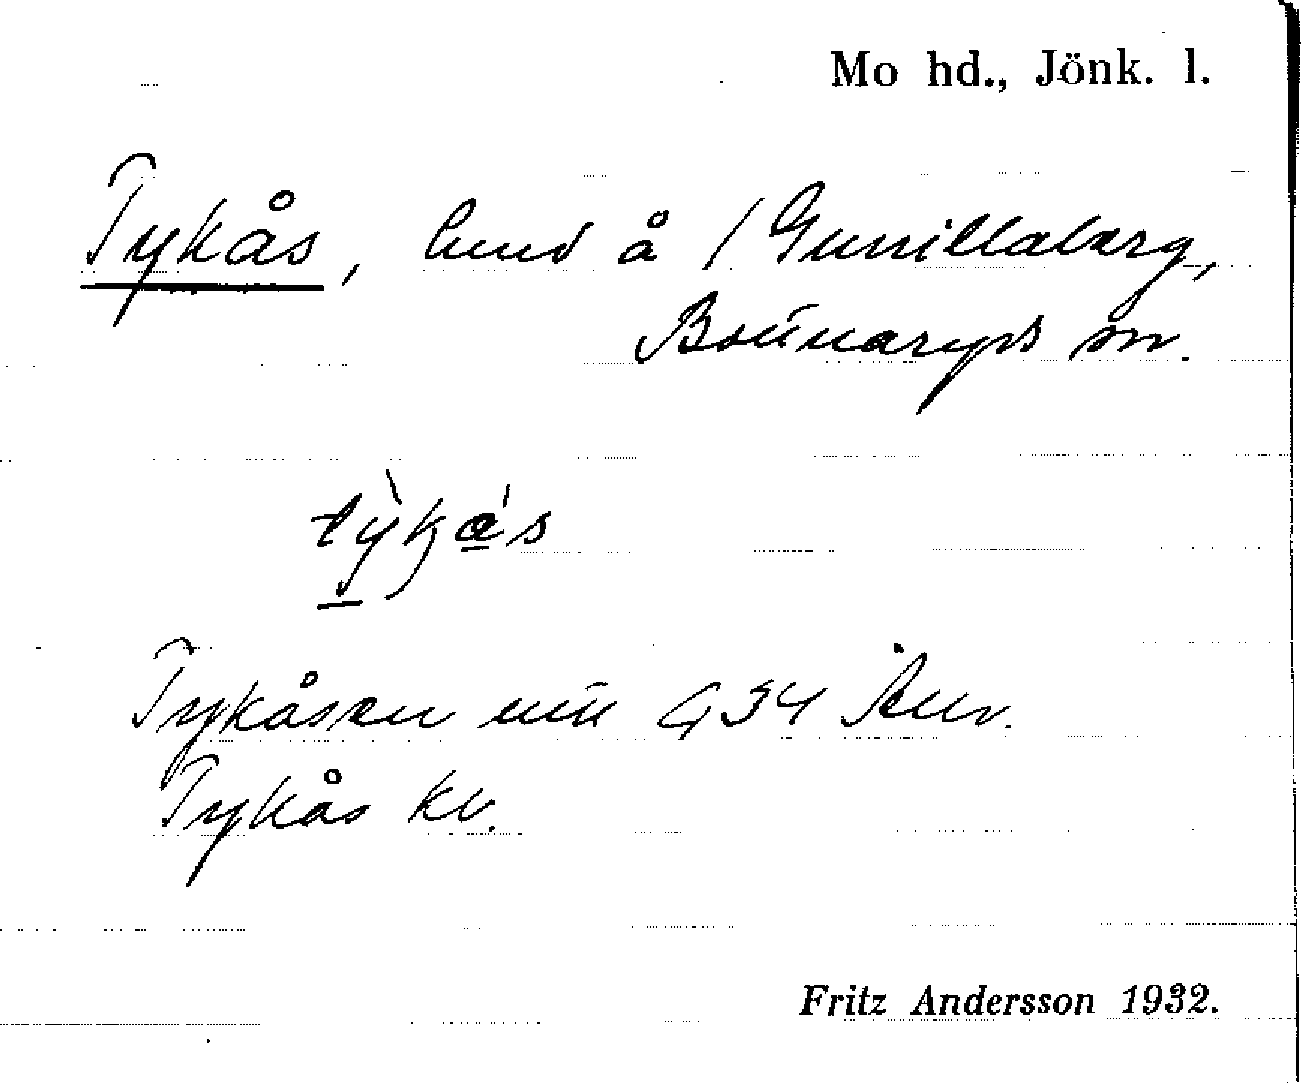 Mo hd., Jönk. l.
Tykås, lund å / Gunillaberg,
Bottnaryds sn.
tỳkás
Tykåsen
Tykås kv.
Fritz Andersson 1932.